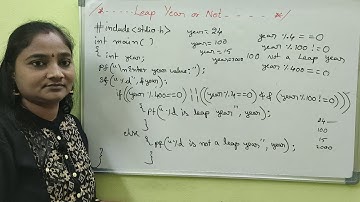 /* - - - - Leap Year or Not - - - - */
#include<stdio.h>
int main( )
{ int year;
pf("\n Enter year value:");
sf("%d", &year);
if((year%400==0)||((year%4==0)&&(year%100!=0)))
{ pf("%d is leap year", year);
}
else
{ pf("%d is not a leap year", year);
}
}
year=24
year=100
year=15
year=2000
year%4==0
year%100!=0
100 not a Leap year
year%400==0
24
100
15
2000